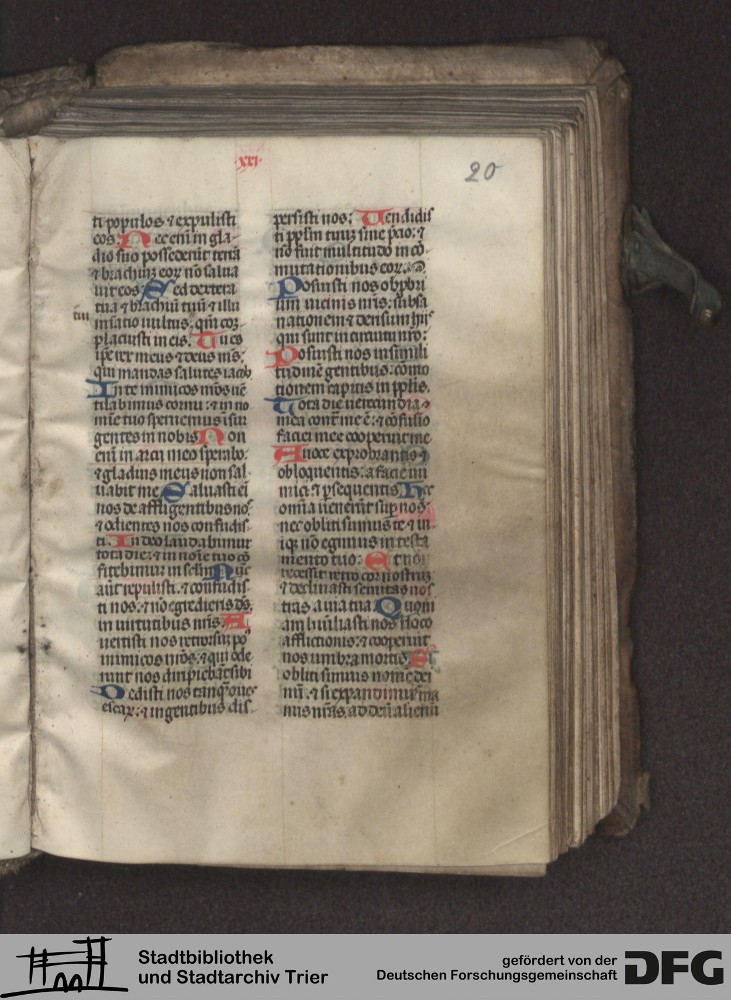 ·xxi·
20
ti populos ⁊ expulisti
eos. Nec eni̅ in gla
dio suo possederu̅t terra̅
⁊ brachiu̅ eor̅ no̅ salua
uit eos. Sed dextera
tua ⁊ brachiu̅ tuu̅ ⁊ illu
tui
minatio uultus. qm̅
placuisti in eis. Tu es
ipse rex meus ⁊ deus m̅s.
qui mandas salutes iacob
In te inimicos nr̅os ue̅
tilabimus cornu: ⁊ in no
mi̅e tuo spernemus i̅sur
gentes in nobis. Non
eni̅ in arcu meo sperabo:
⁊ gladius meus non sal
uabit me. Saluasti ei̅
nos de affligentibus nos.
⁊ odientes nos confudis
ti. In deo laudabimur
tota die: ⁊ in noi̅e tuo co̅
fitebimur in sc̅lm. Nu̅c
aut̅ repulisti. ⁊ confudis
ti nos: ⁊ no̅ egredieris d̅s.
in uirtutibus nr̅is. A
uertisti nos retrorsu̅ po̅
inimicos nr̅os: ⁊ qui ode
runt nos diripieba̅t sibi
Dedisti nos tanq̅ oues
escar̅: ⁊ in gentibus dis.
persisti nos: Uendidis
ti pp̅lm tuu̅ sine p̅cio: ⁊
no̅ fuit multitudo in co̅
mutationibus eor̅.
Posuisti nos obpbri
um uicinis nr̅is: subsa
nationem ⁊ derisum hijs
qui sunt in circuitu nr̅o:
Posuisti nos in simili
tudine̅ gentibus: co̅mo
tionem capitis in pp̅lis.
Tota die uerecundia
mea contra me e̅: ⁊ co̅fusio
faciei mee cooperuit me
A uoce exprobrantis ⁊
obloquentis: a facie ini
mici ⁊ p̅sequentis. Hec
omnia ueneru̅t sup̅ nos.
nec obliti sumus te ⁊ in
iq̅ no̅ egimus in testa
mento tuo: Et no̅
recessit retro cor nostru̅
⁊ declinasti semitas nos
tras a uia tua. Quoni
am humiliasti nos i̅ loco
afflictionis: ⁊ cooperuit
nos umbra mortis. Si
obliti sumus nome̅ dei
nr̅i. ⁊ si expandimus ma
nus nr̅as. ad deu̅ alienu̅
Stadtbibliothek
und Stadtarchiv Trier
gefördert von der
Deutschen Forschungsgemeinschaft
DFG